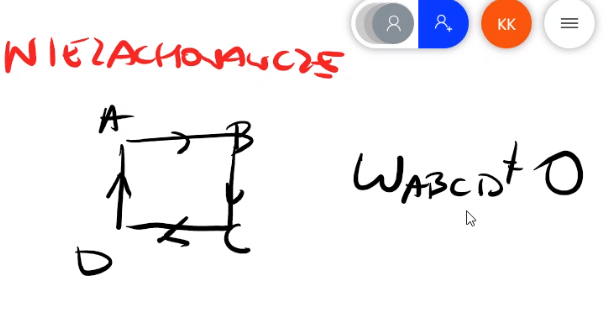 KK
NIEZACHOWAWCZE
A
B
W_ABCD ≠ 0
D
C